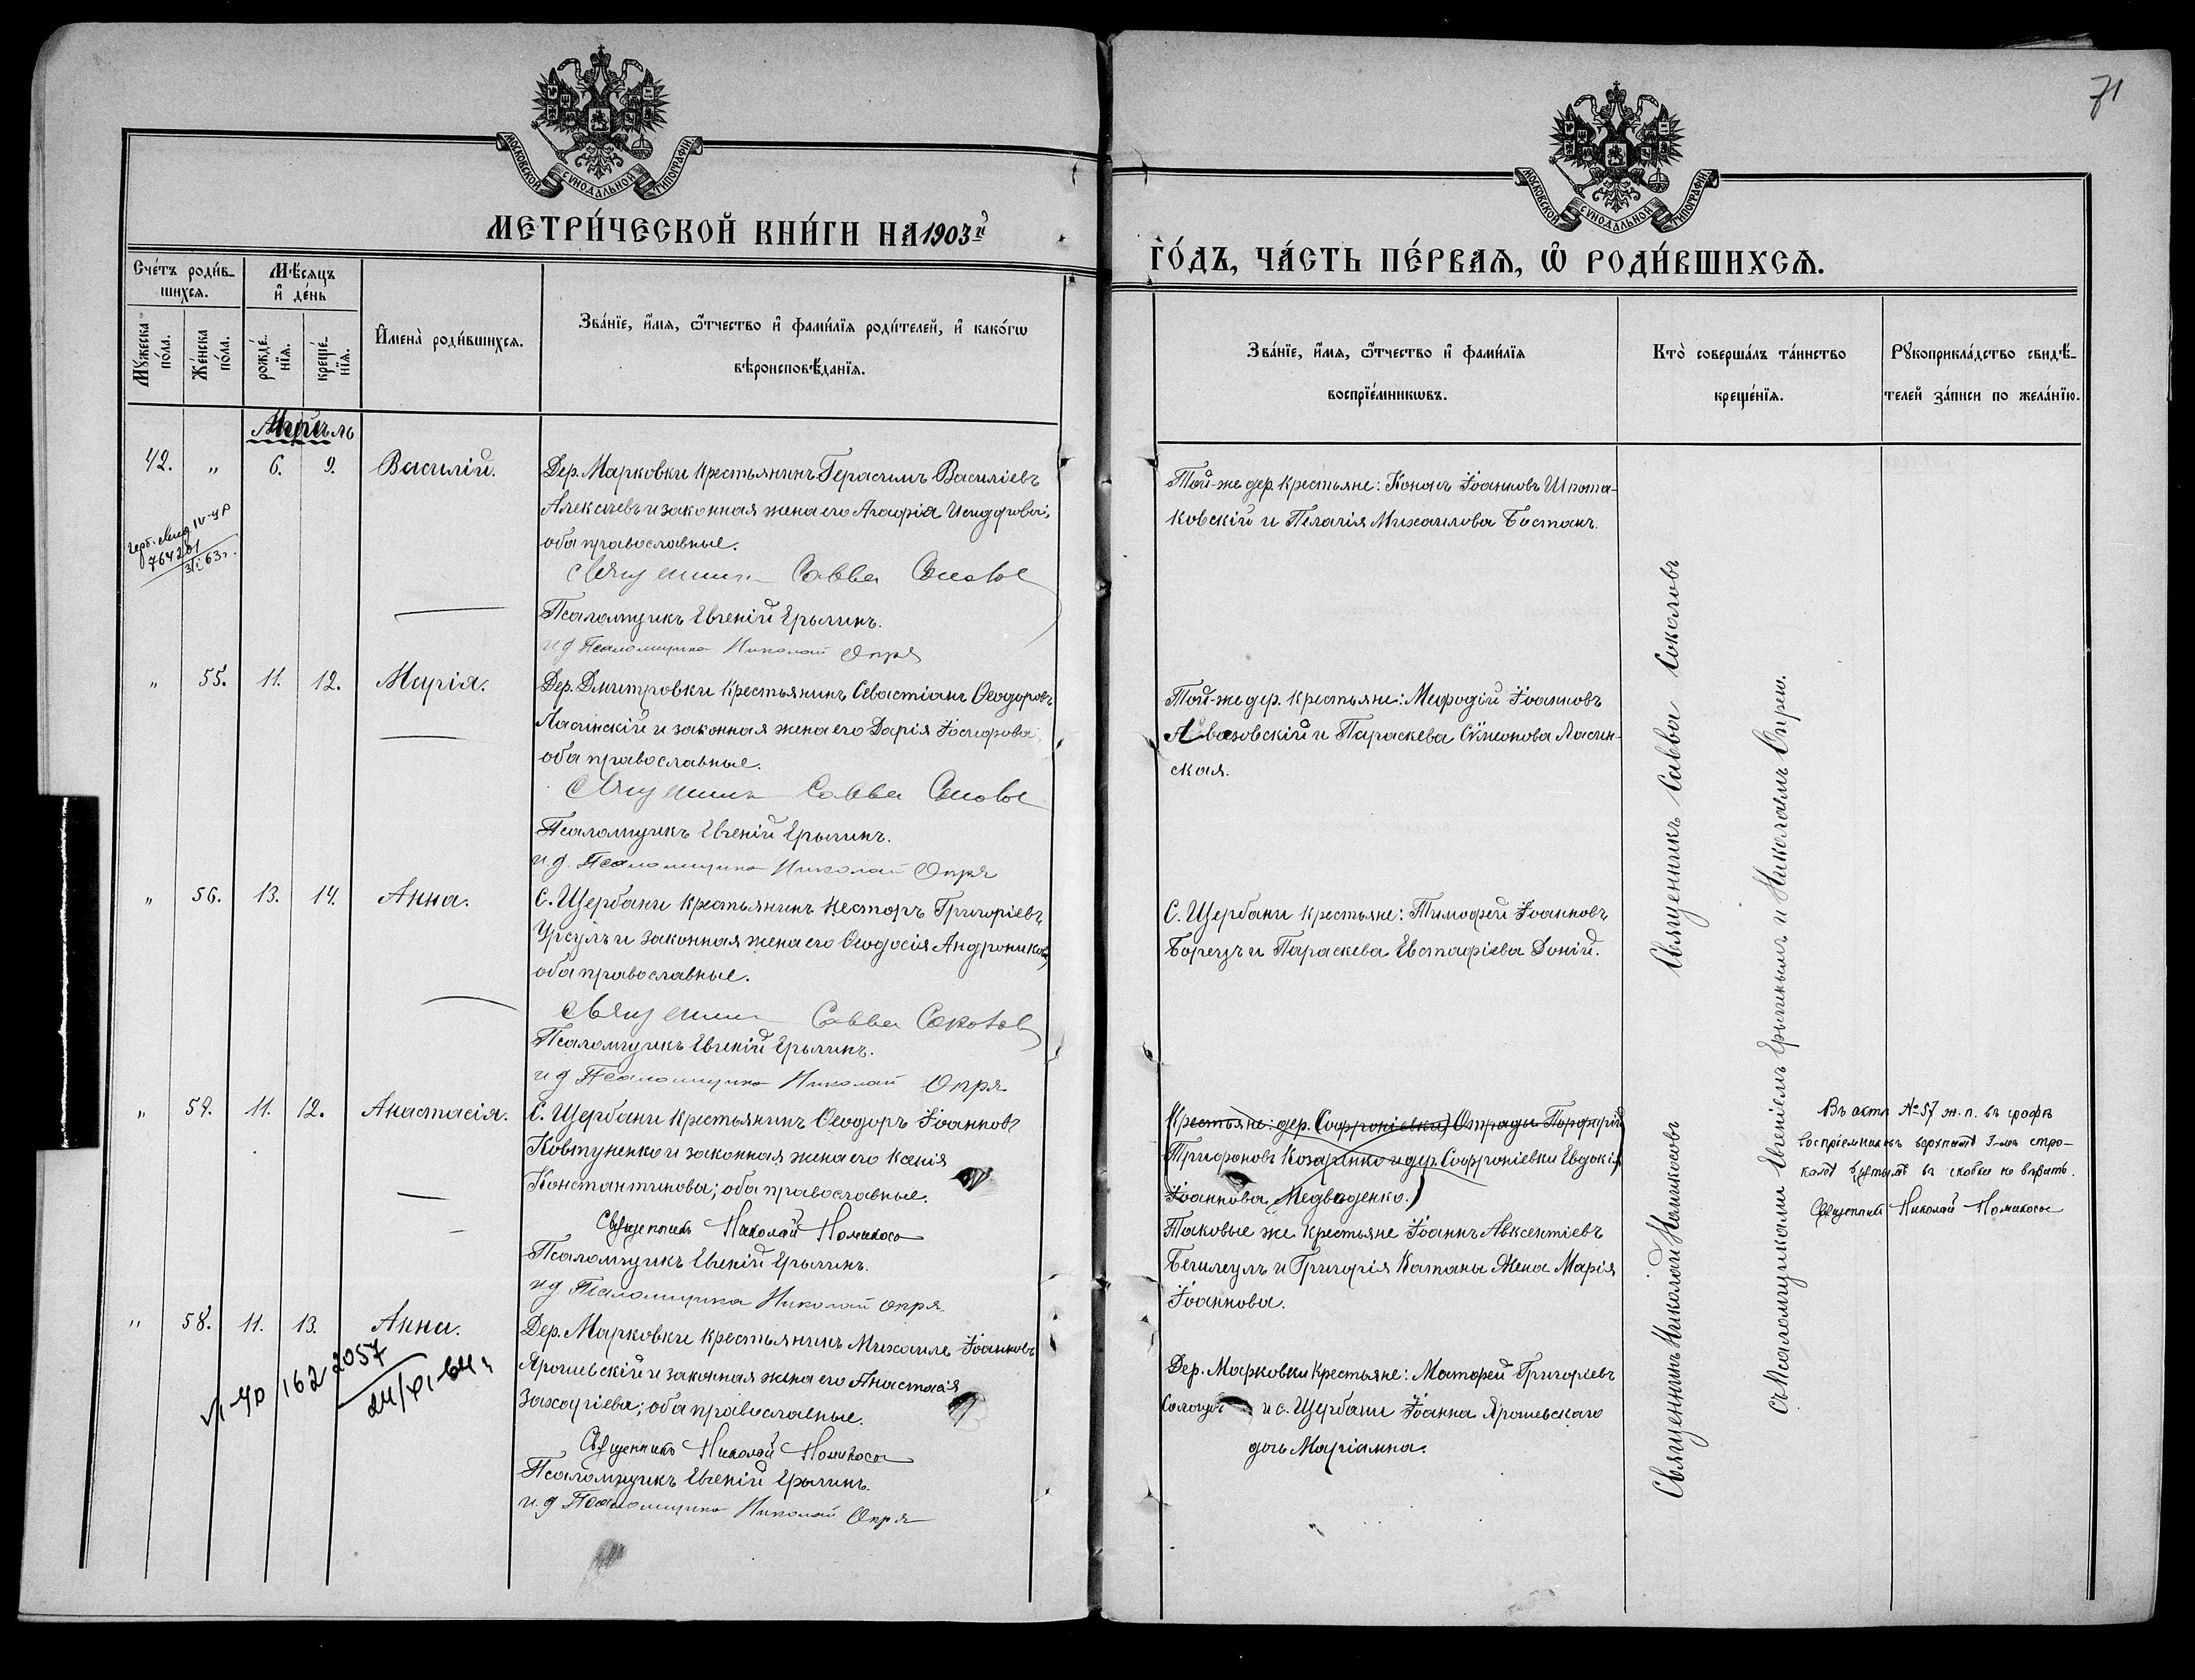 71
МОСКОВСКОЙ СѴНОДАЛЬНОЙ ТИПОГРАФІИ
МОСКОВСКОЙ СѴНОДАЛЬНОЙ ТИПОГРАФІИ
МЕТРИ́ЧЕСКОЙ КНИ́ГИ НА 1903й
ГО́ДЪ, ЧА́СТЬ ПЕ́РВАЯ, Ѽ РОДИ́ВШИХСЯ.
Сче́тъ роди́в-
шихся.
Мѣ́сяцъ
и҆ де́нь
Мꙋ́жеска
по́ла.
Же́нска
по́ла.
рожде́-
нїя.
креще́-
нїя.
И҆мена̀ роди́вшихся.
Зва́нїе, и҆́мя, ѻ҆́тчество и҆ фами́лїя роди́телей, и҆ како́гѡ
вѣроисповѣ́данїя.
Зва́нїе, и҆́мя, ѻ҆́тчество и҆ фами́лїя
воспрїе́мникѡвъ.
Кто̀ соверша́лъ та́инство
креще́нїя.
Рꙋкоприкла́дство свидѣ́-
телей за́писи по жела́нїю.
Апрѣль
42. „ 6. 9. Василій.
Дер. Марковки крестьянинъ Герасимъ Василіевъ
Алексѣевъ и законная жена его Агафія Исидорова;
оба православные.
Священникъ Савва Соколов
Псаломщикъ Евгеній Ерыгинъ.
и д Псаломщика Николай Опря
764201
31/I 63г.
Той-же дер. крестьяне: Кононъ Іоанновъ Шпота-
ковскій и Пелагія Михаилова Бостанъ.
„ 55. 11. 12. Марія.
Дер. Дмитровки крестьянинъ Севастіанъ Ѳеодоровъ
Ласинскій и законная жена его Дарія Іосифова
оба православные.
Священникъ Савва Соколов
Псаломщикъ Евгеній Ерыгинъ.
и.д. Псаломщика Николай Опря
Той-же дер. крестьяне: Меѳодій Іоанновъ
Авазовскій и Параскева Сѵмеонова Ласин-
ская.
„ 56. 13. 14. Анна.
С. Щербани крестьянинъ Несторъ Григоріевъ
Урсулъ и законная жена его Ѳеодосія Андроникова,
оба православные.
Священникъ Савва Соколов
Псаломщикъ Евгеній Ерыгинъ.
и д Псаломщика Николай Опря
С. Щербани крестьяне: Тимоѳей Іоанновъ
Борецъ и Параскева Евстафіева Доній.
„ 57. 11. 12. Анастасія.
С. Щербани крестьянинъ Ѳеодоръ Іоанновъ
Ковтуненко и законная жена его Ксенія
Константинова; оба православные.
Священникъ Николай Номикосъ
Псаломщикъ Евгеній Ерыгинъ.
и д. Псаломщика Николай Опря
(Крестьяне: дер. Софроніевки) Отрады Порфирій
Трифоновъ Козаренко и дер. Софроніевки Евдокія
Іоаннова Медведенко.)
Таковые же крестьяне Іоаннъ Авксентіевъ
Бешлеулъ и Григорія Катаны жена Марія
Іоаннова.
Въ актѣ №57 ж. п. въ графѣ
воспріемниковъ верхнимъ 3-мъ стро-
камъ взятымъ въ скобки не вѣрить.
Священникъ Николай Номикосъ
„ 58. 11. 13. Анна.
Дер. Марковки крестьянинъ Михаилъ Іоанновъ
Ярошевскій и законная жена его Анастасія
Захаріева; оба православные.
Священникъ Николай Номикосъ
Псаломщикъ Евгеній Ерыгинъ.
и.д Псаломщика Николай Опря
162 2057
Дер. Марковки крестьяне: Матфей Григоріевъ
и с. Щербани Іоанна Ярошевскаго
дочь Маріамна.
Священникъ Савва Соколовъ
Священникъ Николай Номикосъ
съ Псаломщиками Евгеніемъ Ерыгинымъ и Николаемъ Опрею.